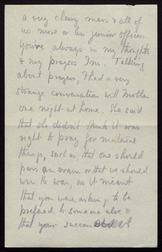 a very clever man & all of
us more or less junior officers
You're always in my thoughts
& my prayers Im. Talking
about prayers, I had a very
strange conversation with Mother
one night at home. She said
that she didn't think it was
right to pray for material
things, such as that one should
pass an exam or that we should
win the war, as it meant
that you was asking to be
preferred to someone else &
that your success